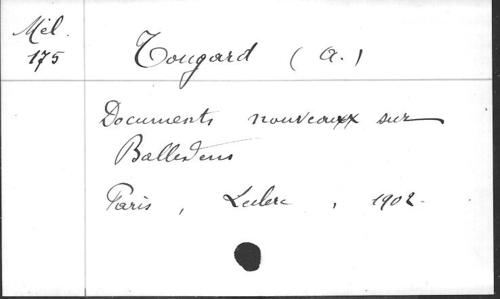 Mél.
175
Tougard (A.)
Documents nouveaux sur
Ballesdens
Paris, Leclerc, 1902.